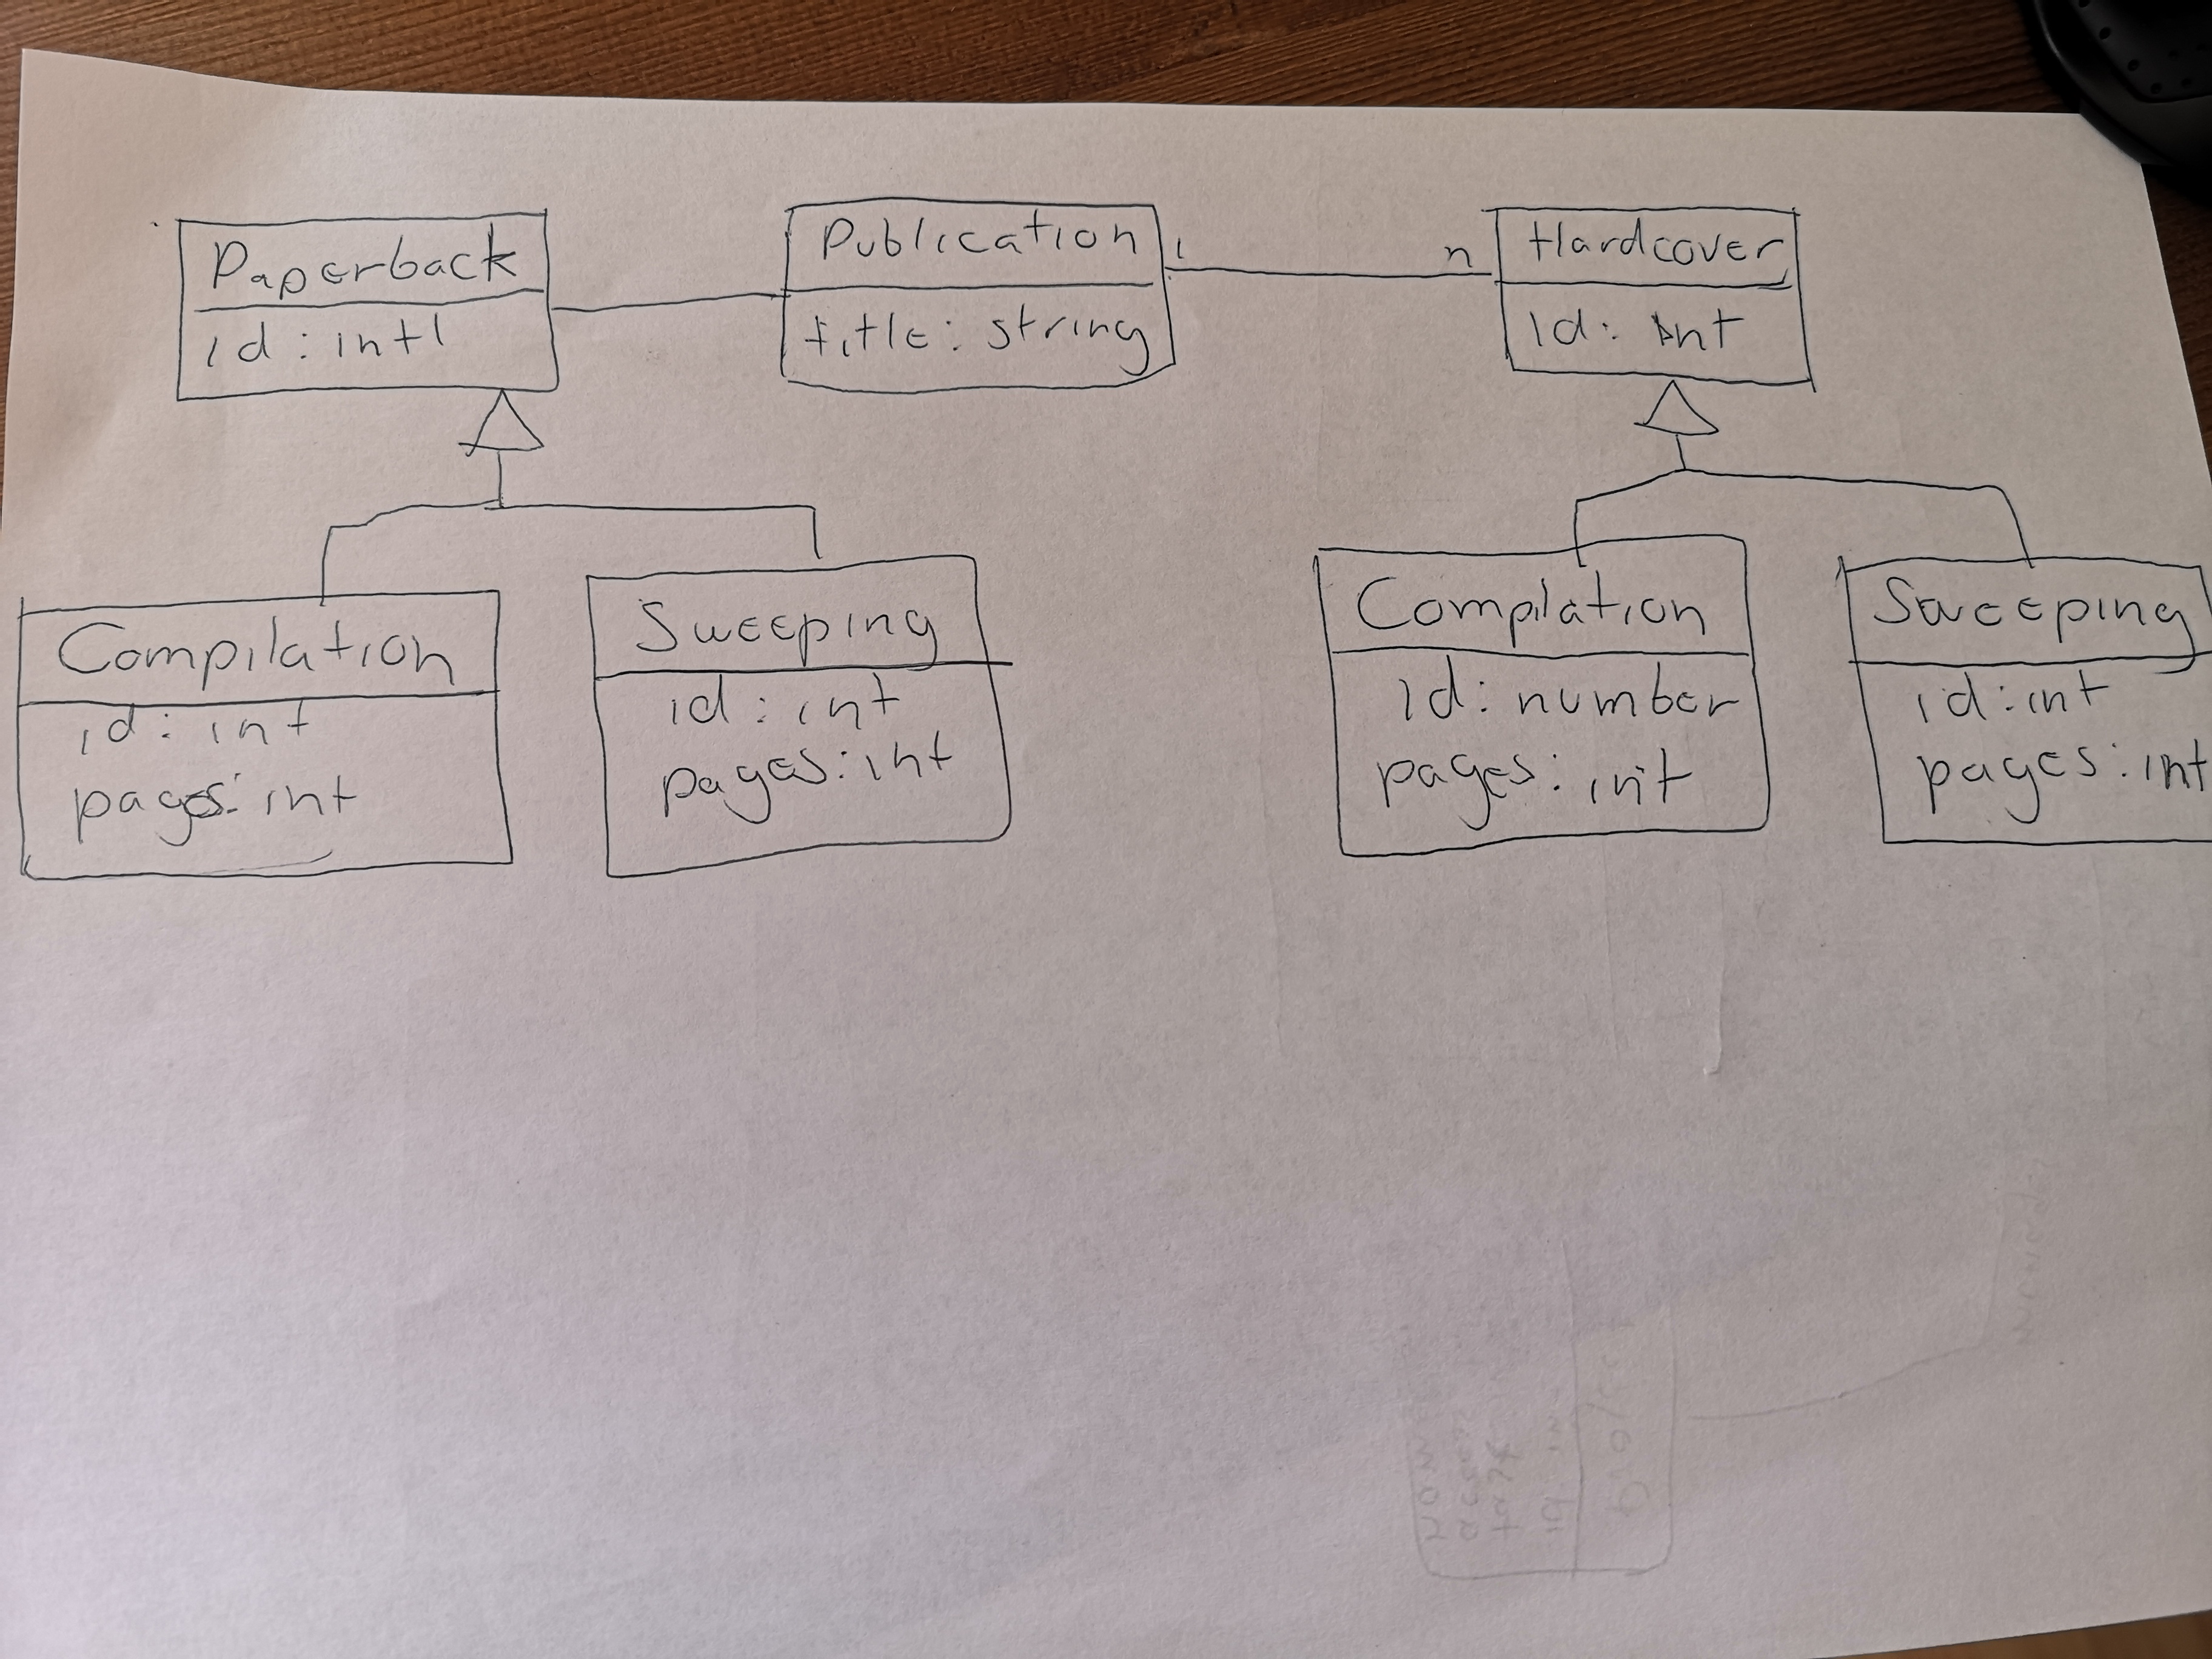 Paperback
id: intl
Publication
title: string
1
n
Hardcover
id: int
Compilation
id: int
pages: int
Sweeping
id: int
pages: int
Compilation
id: number
pages: int
Sweeping
id: int
pages: int